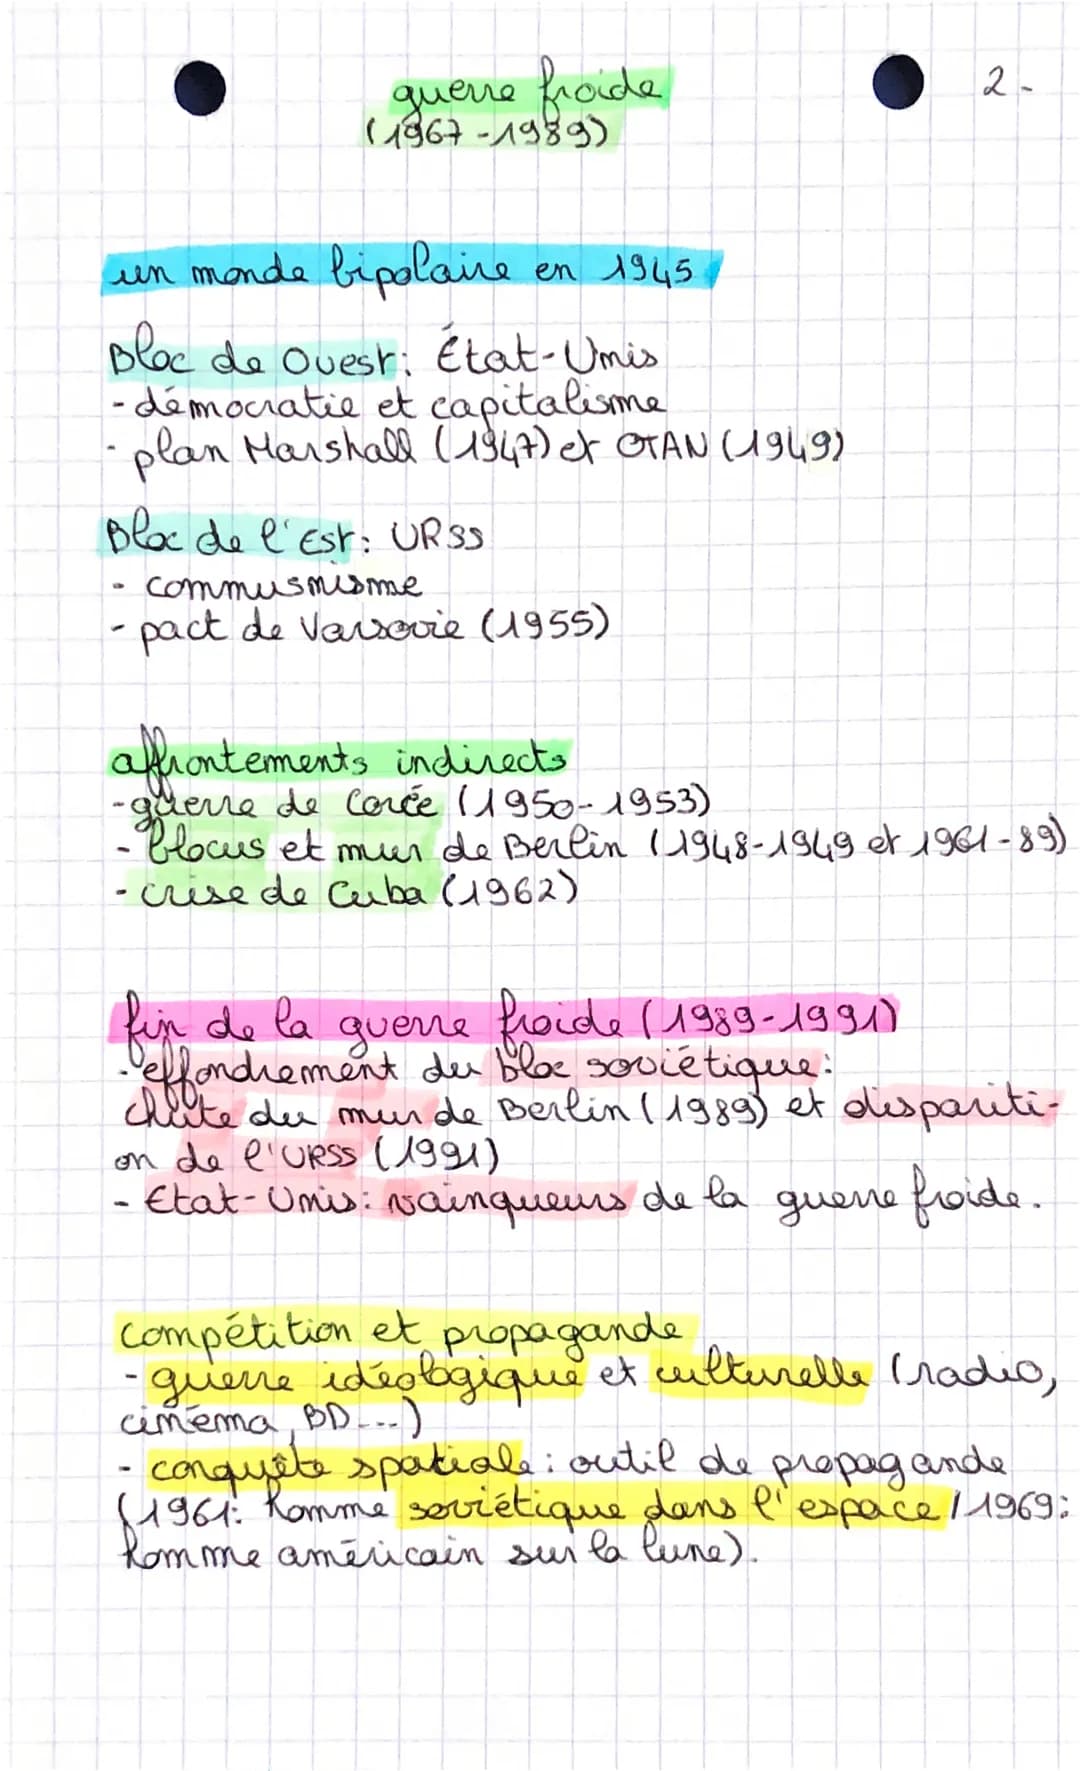 guerre froide
2-
(1967-1989)
un monde bipolaire en 1945
Bloc de Ouest: État-Unis
- démocratie et capitalisme
- plan Marshall (1947) et OTAN (1949)
Bloc de l'Est: URSS
- commusnisme
- pact de Varsovie (1955)
affrontements indirects
- guerre de Corée (1950-1953)
- blocus et mur de Berlin (1948-1949 et 1961-89)
- crise de Cuba (1962)
fin de la guerre froide (1989-1991)
- effondrement du bloc soviétique:
chute du mur de Berlin (1989) et dispariti-
on de l'URSS (1991)
- Etat-Unis: vainqueurs de la guerre froide.
compétition et propagande
- guerre idéologique et culturelle (radio,
cinéma, BD...)
- conquête spatiale: outil de propagande
(1961: homme soviétique dans l'espace / 1969:
homme américain sur la lune).